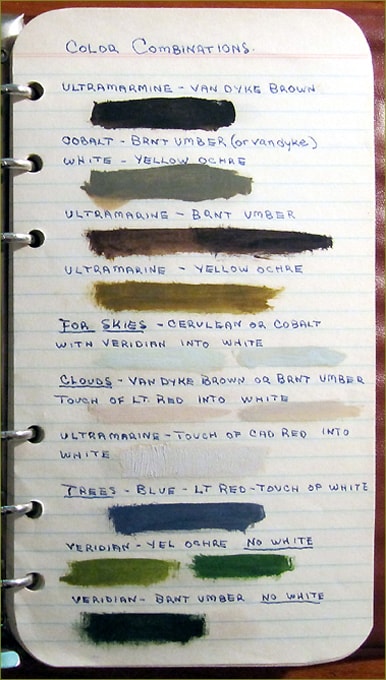 COLOR COMBINATIONS.
ULTRAMARMINE - VAN DYKE BROWN
COBALT - BRNT UMBER (or vandyke)
WHITE - YELLOW OCHRE
ULTRAMARINE - BRNT UMBER
ULTRAMARINE - YELLOW OCHRE
FOR SKIES - CERULEAN OR COBALT
WITH VERIDIAN INTO WHITE
CLOUDS - VAN DYKE BROWN OR BRNT UMBER
TOUCH OF LT RED INTO WHITE
ULTRAMARINE - TOUCH OF CAD RED INTO
WHITE
TREES - BLUE - LT RED - TOUCH OF WHITE
VERIDIAN - YEL OCHRE NO WHITE
VERIDIAN - BRNT UMBER NO WHITE